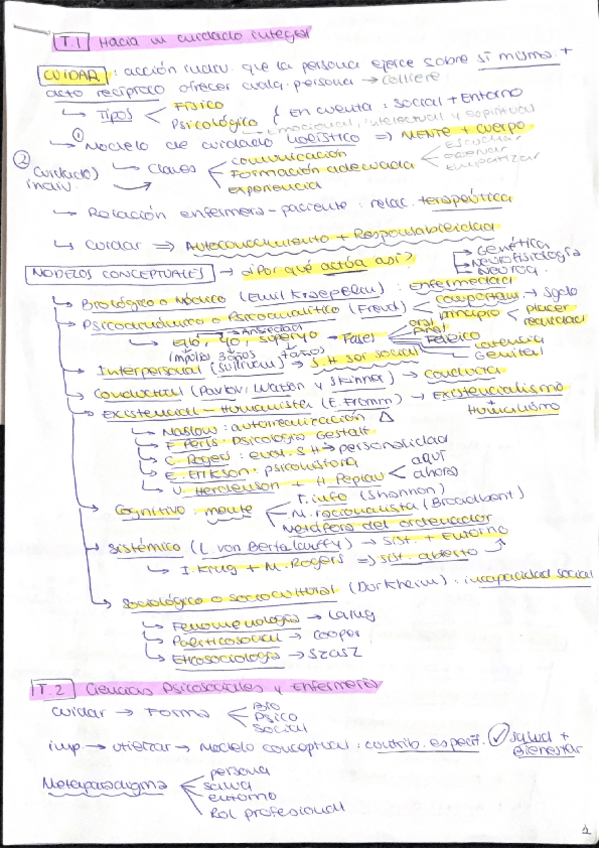 T.1 Hacia un cuidado integral
CUIDAR : acción indiv. que la persona ejerce sobre sí misma +
acto recíproco ofrecer cualq. persona → Collière
↳ Tipos < Físico
Psicológico { En cuenta : social + Entorno
Emocional, intelectual y espiritual
① ↳ Modelo de cuidado holístico ⇒ MENTE + cuerpo
② Cuidado indiv. ↳ Claves < comunicación
Formación adecuada < Escuchar
observar
empatizar
experiencia
↳ Relación enfermera - paciente : relac. terapéutica
↳ cuidar ⇒ Autoconocimiento + Responsabilidad
MODELOS CONCEPTUALES → ¿Por qué actúa así?
→ Genética
→ Neurofisiología
→ Neuroq.
↳ Biológico o Médico (Emil Kraepelin) : enfermedad
↳ Psicodinámico o Psicoanalítico (Freud) < comportam. → Sgdo
principio < placer
realidad
↳ ello, yo, superyo → Fases
→ Ansiedad
impulso 3 años 7 años
oral
Anal
Fálico
Latencia
Genital
↳ Interpersonal (Sullivan) → S.H ser social
↳ Conductual (Pavlov, Watson y Skinner) → conducta
↳ Existencial - Humanista (E. Fromm) → Existencialismo + Humanismo
↳ Maslow : autorrealización △
↳ F. Perls : Psicología Gestalt
↳ C. Rogers : evol. S.H → personalidad
↳ E. Erikson : psicohistoria
↳ V. Henderson + H. Peplau < aquí
ahora
↳ Cognitivo : mente < T. info (Shannon)
M. racionalista (Broadbent)
Metáfora del ordenador
↳ Sistémico (L. von Bertalanffy) → Sist. + Entorno
↳ I. King + M. Rogers ⇒ sist. abierto
↳ Sociológico o sociocultural (Durkheim) : incapacidad social
↳ Fenomenología → Laing
↳ Políticosocial → Cooper
↳ Eticosociología → Szasz
T.2 Ciencias Psicosociales y Enfermería
cuidar → Forma < Bio
Psico
Social
imp → utilizar → Modelo conceptual : contrib. específ. ✓ salud + Bienestar
Metaparadigma < persona
salud
entorno
Rol profesional
1